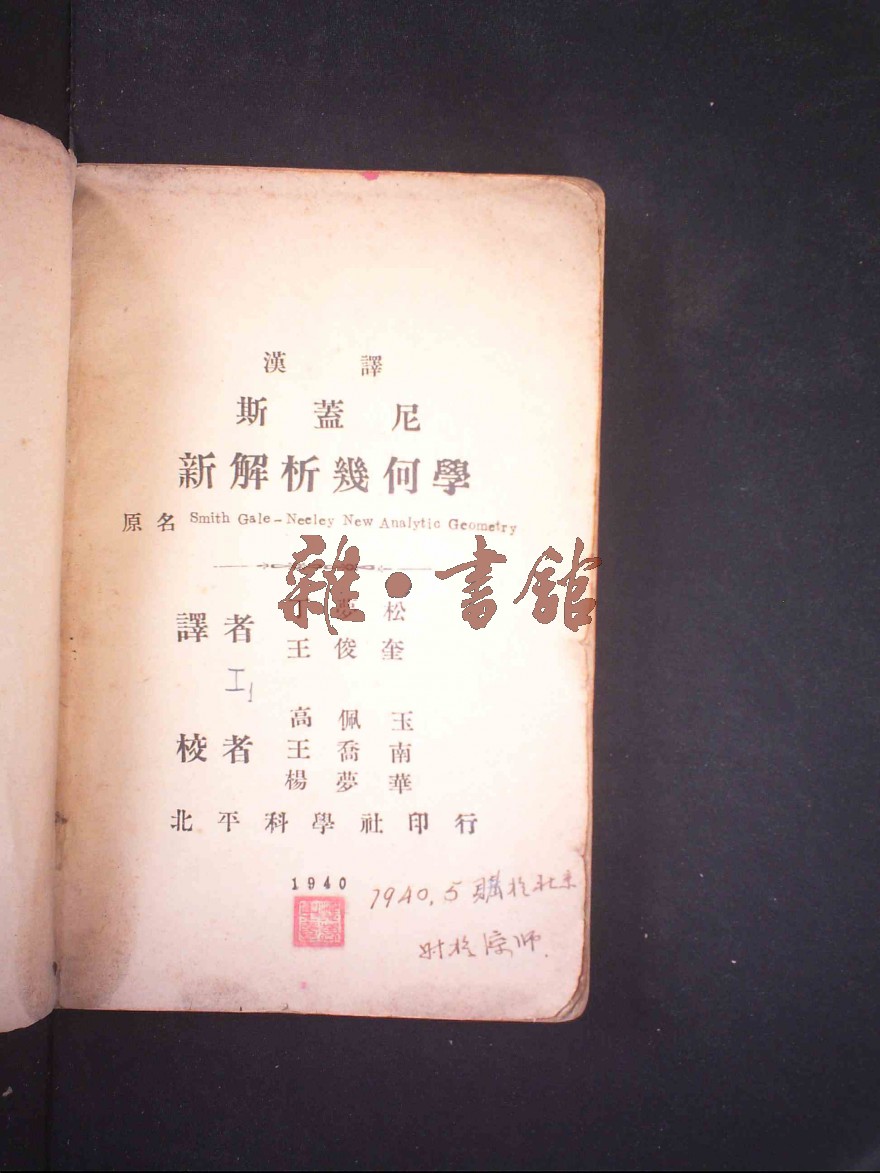 漢 譯
斯 蓋 尼
新 解 析 幾 何 學
原 名 Smith Gale-Neeley New Analytic Geometry
雜·書館
譯 者
夢 松
王 俊 奎
高 佩 玉
校 者 王 喬 南
楊 夢 華
北 平 科 學 社 印 行
1940
1940.5 購於